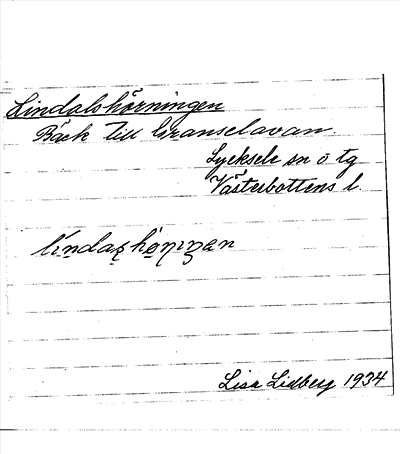 Lindalshörningen
Bäck till Granselavan
Lycksele sn o tg
Västerbottens l.
Lisa Lidberg 1934